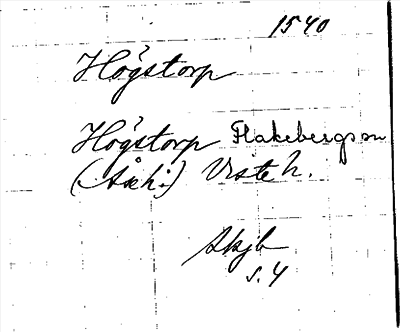 1540
Högstorp
Högstorp Flakebergs sn
(Åse hd) Viste h.
Skjb
s. 4